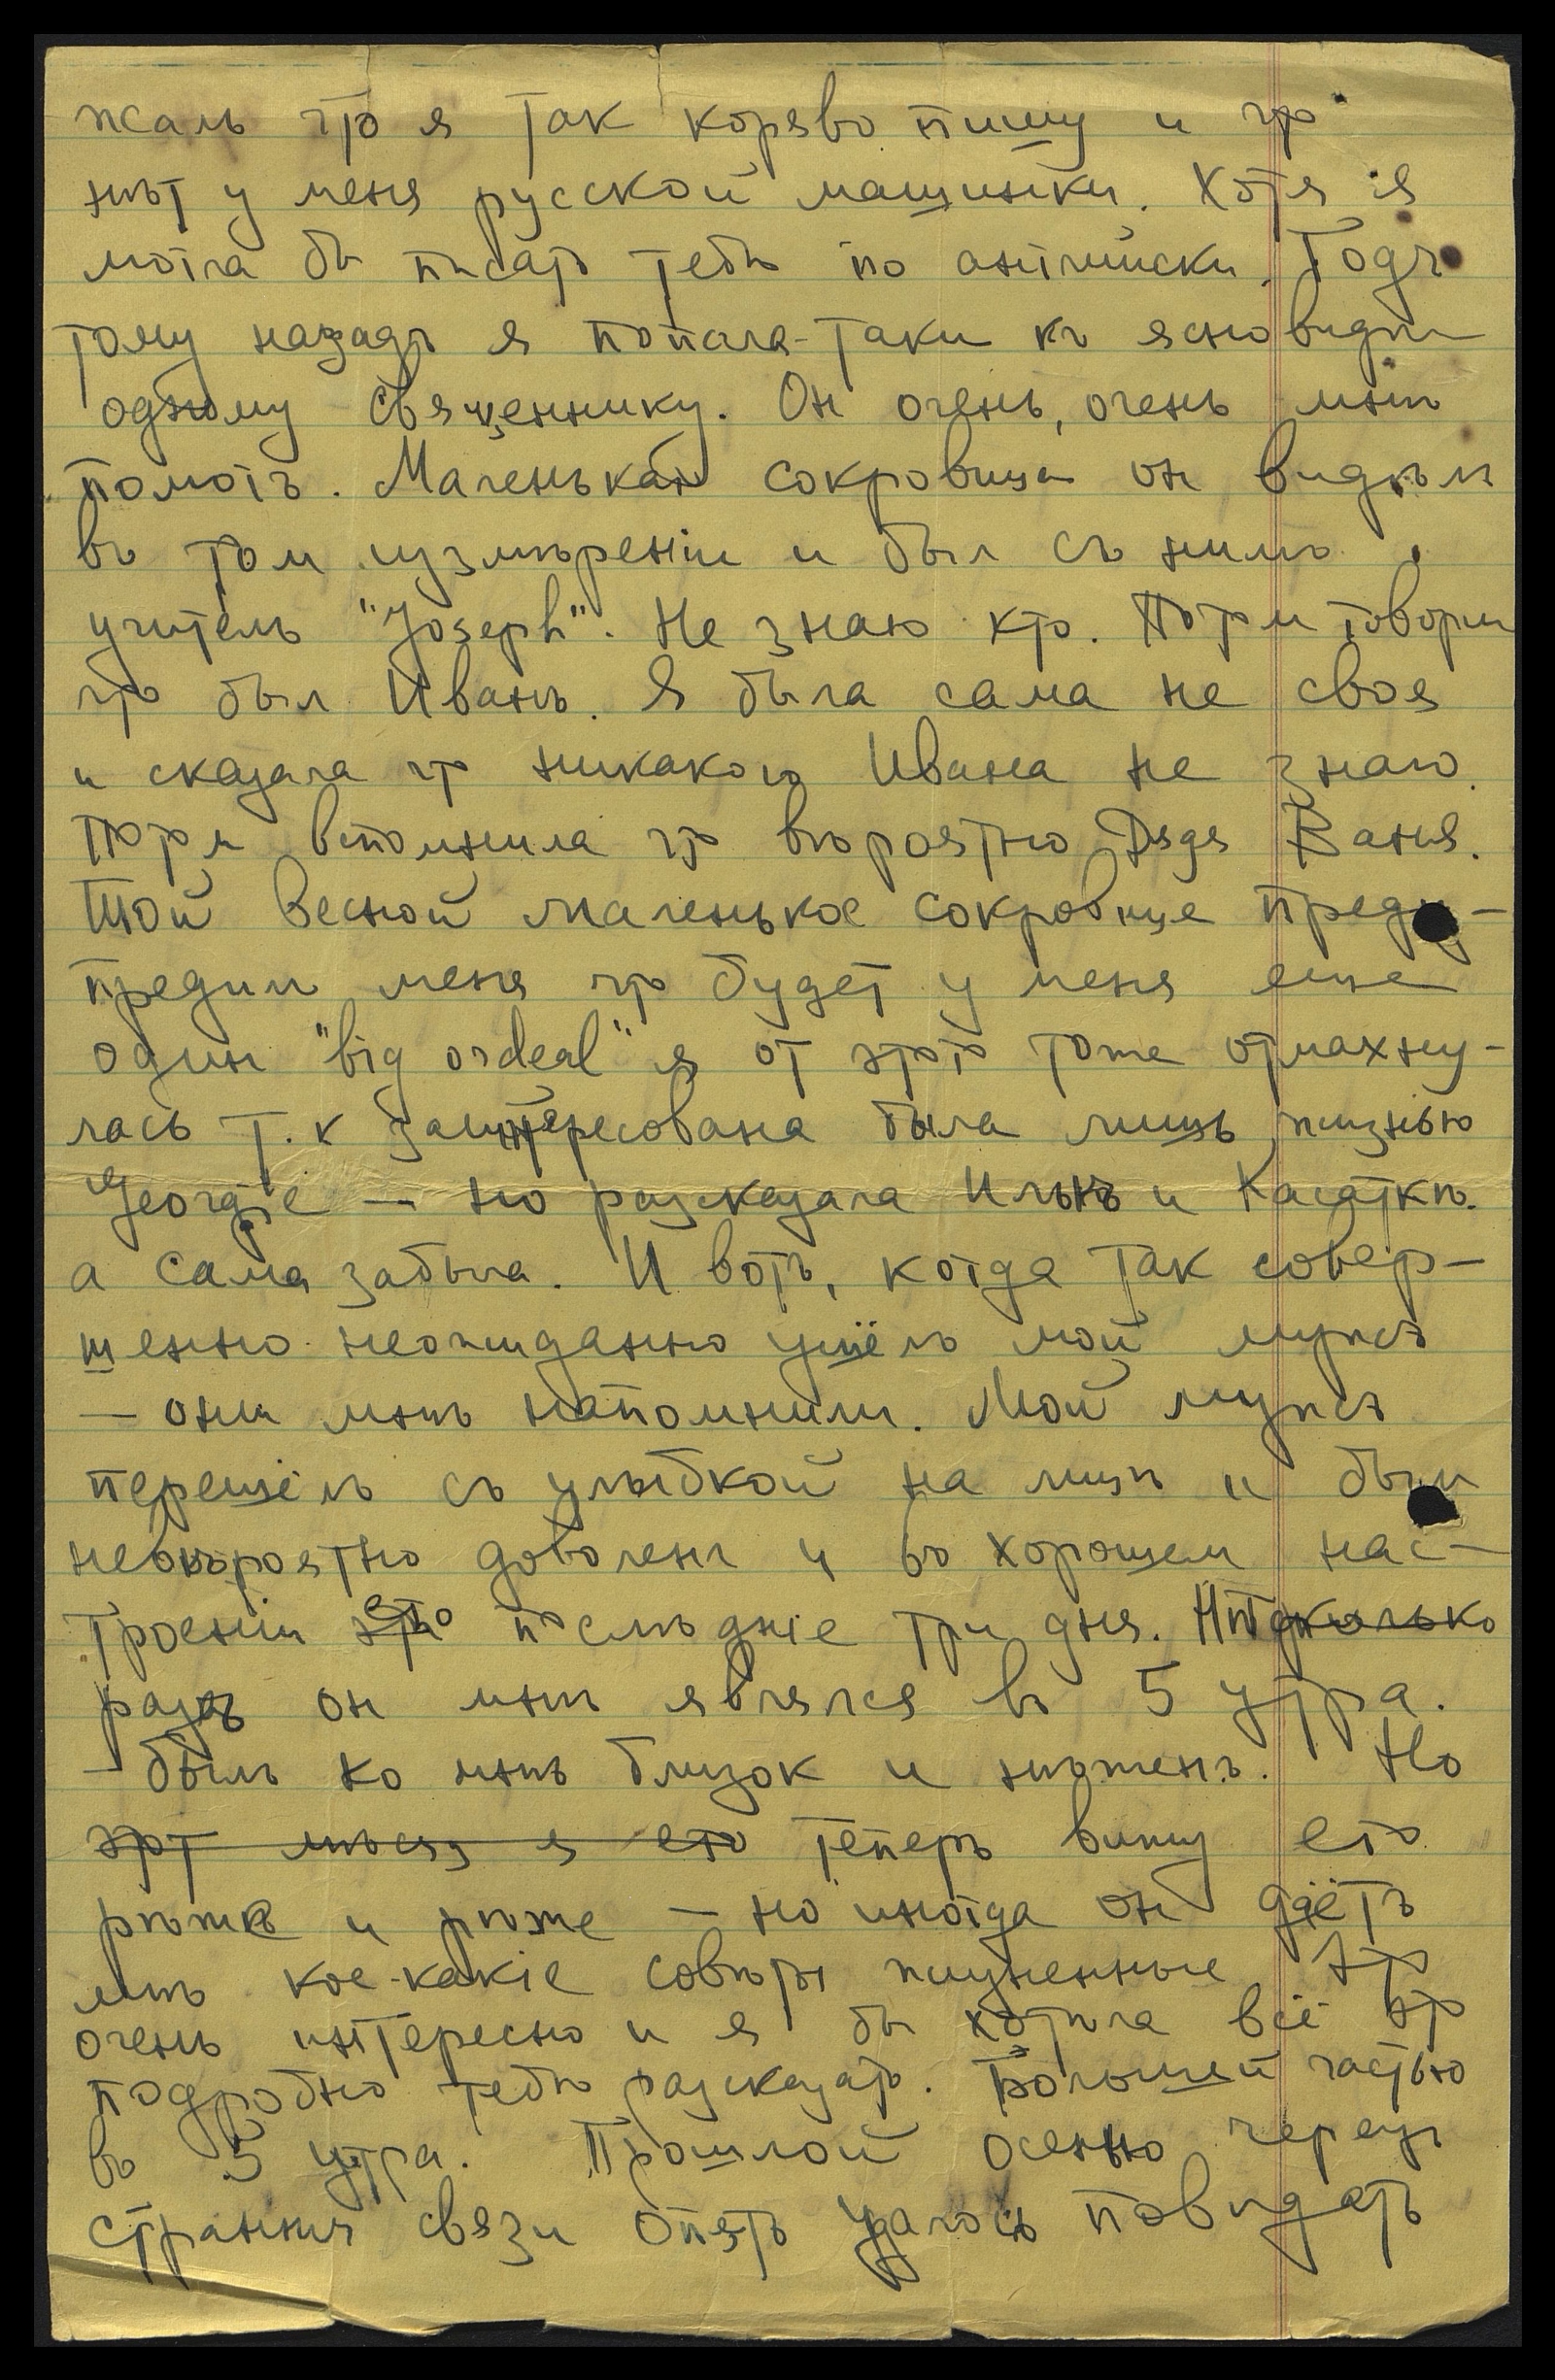 жаль что я так коряво пишу и что
нѣт у меня русской машинки. Хотя я
могла бы писать тебѣ по англійски. Годъ
тому назадъ я попала-таки къ ясновидящ
одному священнику. Он очень, очень мнѣ
помогъ. Маленькая сокровища он видѣлъ
въ том измѣреніи и был съ нимъ
учитель "Joseph". Не знаю кто. Потом говорил
что был Иванъ. Я была сама не своя
и сказала что никакого Ивана не знаю.
Потом вспомнила что вѣроятно Дядя Ваня.
Той весной маленькое сокровище преду-
предил меня что будет у меня еще
один "big ordeal" я от этого тоже отмахну-
лась т.к заинтересована была лишь жизнью
Georgie – но разсказала Илькѣ и Касаткѣ.
а сама забыла. И вотъ, когда так совер-
шенно неожиданно ушёлъ мой мужъ
– они мнѣ напомнили. Мой мужъ
перешёлъ съ улыбкой на лицѣ и был
невѣроятно доволенъ и въ хорошем нас-
троеніи это послѣдніе три дня.
разъ он мнѣ являлся въ 5 утра.
– былъ ко мнѣ близок и нѣженъ. Но
этот мѣсяц я его теперь вижу его
рѣже и рѣже – но иногда он даётъ
мнѣ кое-какіе совѣты жизненные Это
очень интересно и я бы хотѣла всё это
подробно тебѣ разсказать. Большей частью
въ 5 утра. Прошлой осенью черезъ
странныя связи опять удалось повидать